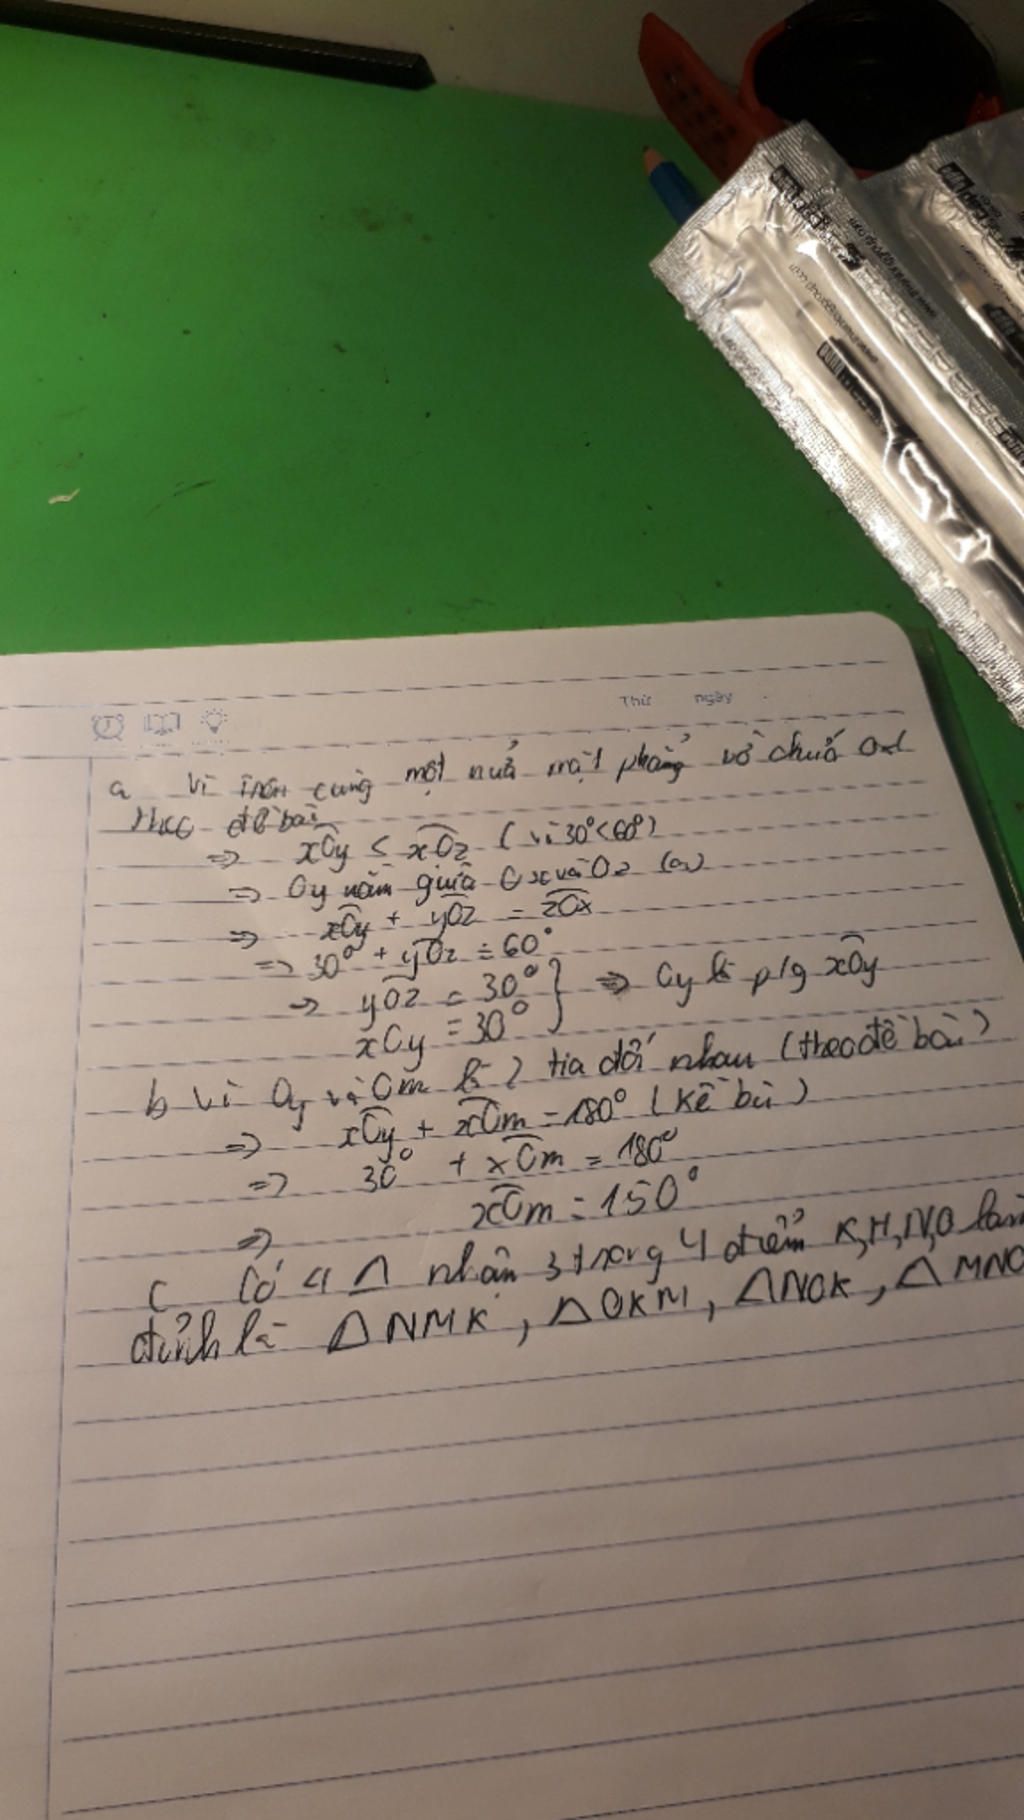 Thứ ngày
a vì trên cùng một nửa mặt phẳng bờ chứa
theo đề bài
=> xOy < xOz (vì 30° < 60°)
=> Oy nằm giữa Ox và Oz
=> xOy + yOz = zOx
=> 30° + yOz = 60°
=> yOz = 30° } => Oy là p/g xOy
xOy = 30°
b Vì Oy và Om là 2 tia đối nhau (theo đề bài)
=> xOy + xOm = 180° (kề bù)
=> 30° + xOm = 180°
=> xOm = 150°
c Có 4 Δ nhận 3 trong 4 điểm K, H, N, O làm
đỉnh là ΔNMK, ΔOKM, ΔNOK, ΔMNO